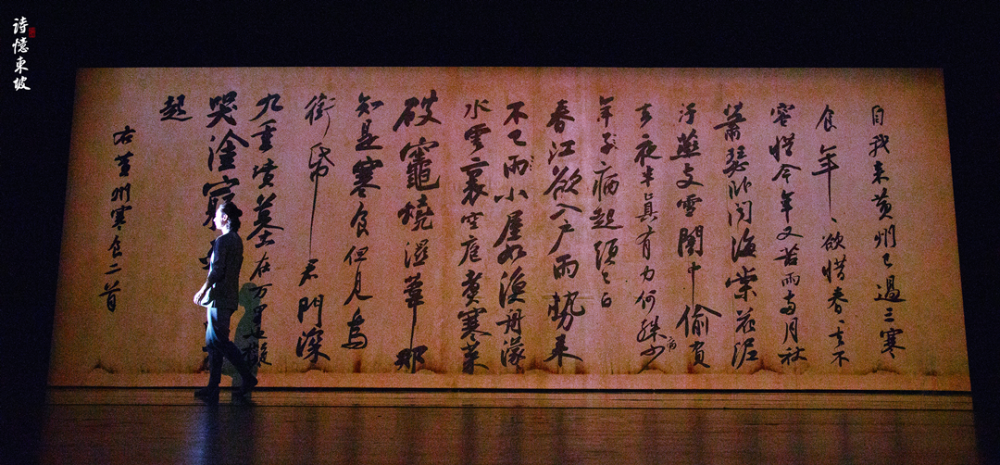 詩憶東坡
自我来黄州已過三寒
食年、欲惜春、去不
容惜今年又苦雨兩月秋
蕭瑟卧聞海棠花泥
汙燕支雪闇中偷負
去夜半真有力何殊少
病
年子病起頭已白
春江欲入户雨勢来
不已雨小屋如漁舟濛
水雲裏空庖煮寒菜
破竈燒濕葦那
知是寒食但見烏
銜帋君門深
九重墳墓在万里也擬
哭塗窮
起
右黄州寒食二首